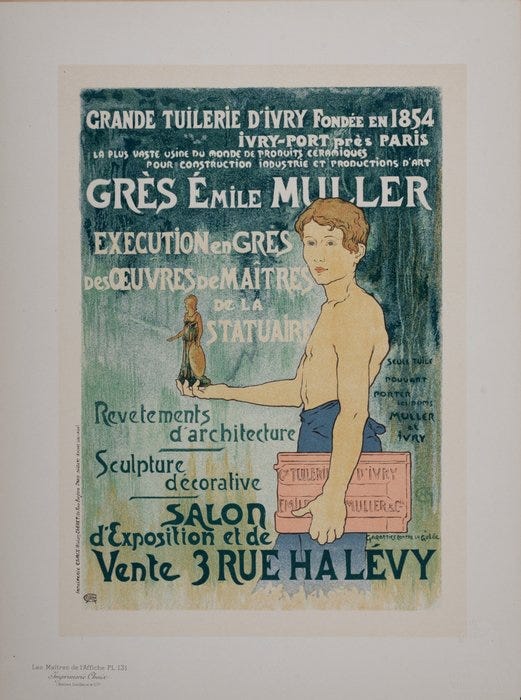 GRANDE TUILERIE D'IVRY FONDÉE EN 1854
IVRY-PORT près PARIS
LA PLUS VASTE USINE DU MONDE DE PRODUITS CÉRAMIQUES
POUR CONSTRUCTION INDUSTRIE ET PRODUCTIONS D'ART
GRÈS ÉMILE MULLER
EXECUTION en GRÈS
DES ŒUVRES DE MAÎTRES
DE LA
STATUAIR
SEULE TUILE
POUVANT
PORTER
LES NOMS
MULLER
ET
IVRY
Revetements
d'architecture
Sculpture
décorative
Gde TUILERIE D'IVRY
EMILE MULLER & Cie
SALON
d'Exposition et de
GARANTIES CONTRE LA GELÉE
Vente 3 RUE HALÉVY
IMPRIMERIE CHAIX
Les Maîtres de l'Affiche PL. 131
Imprimerie Chaix